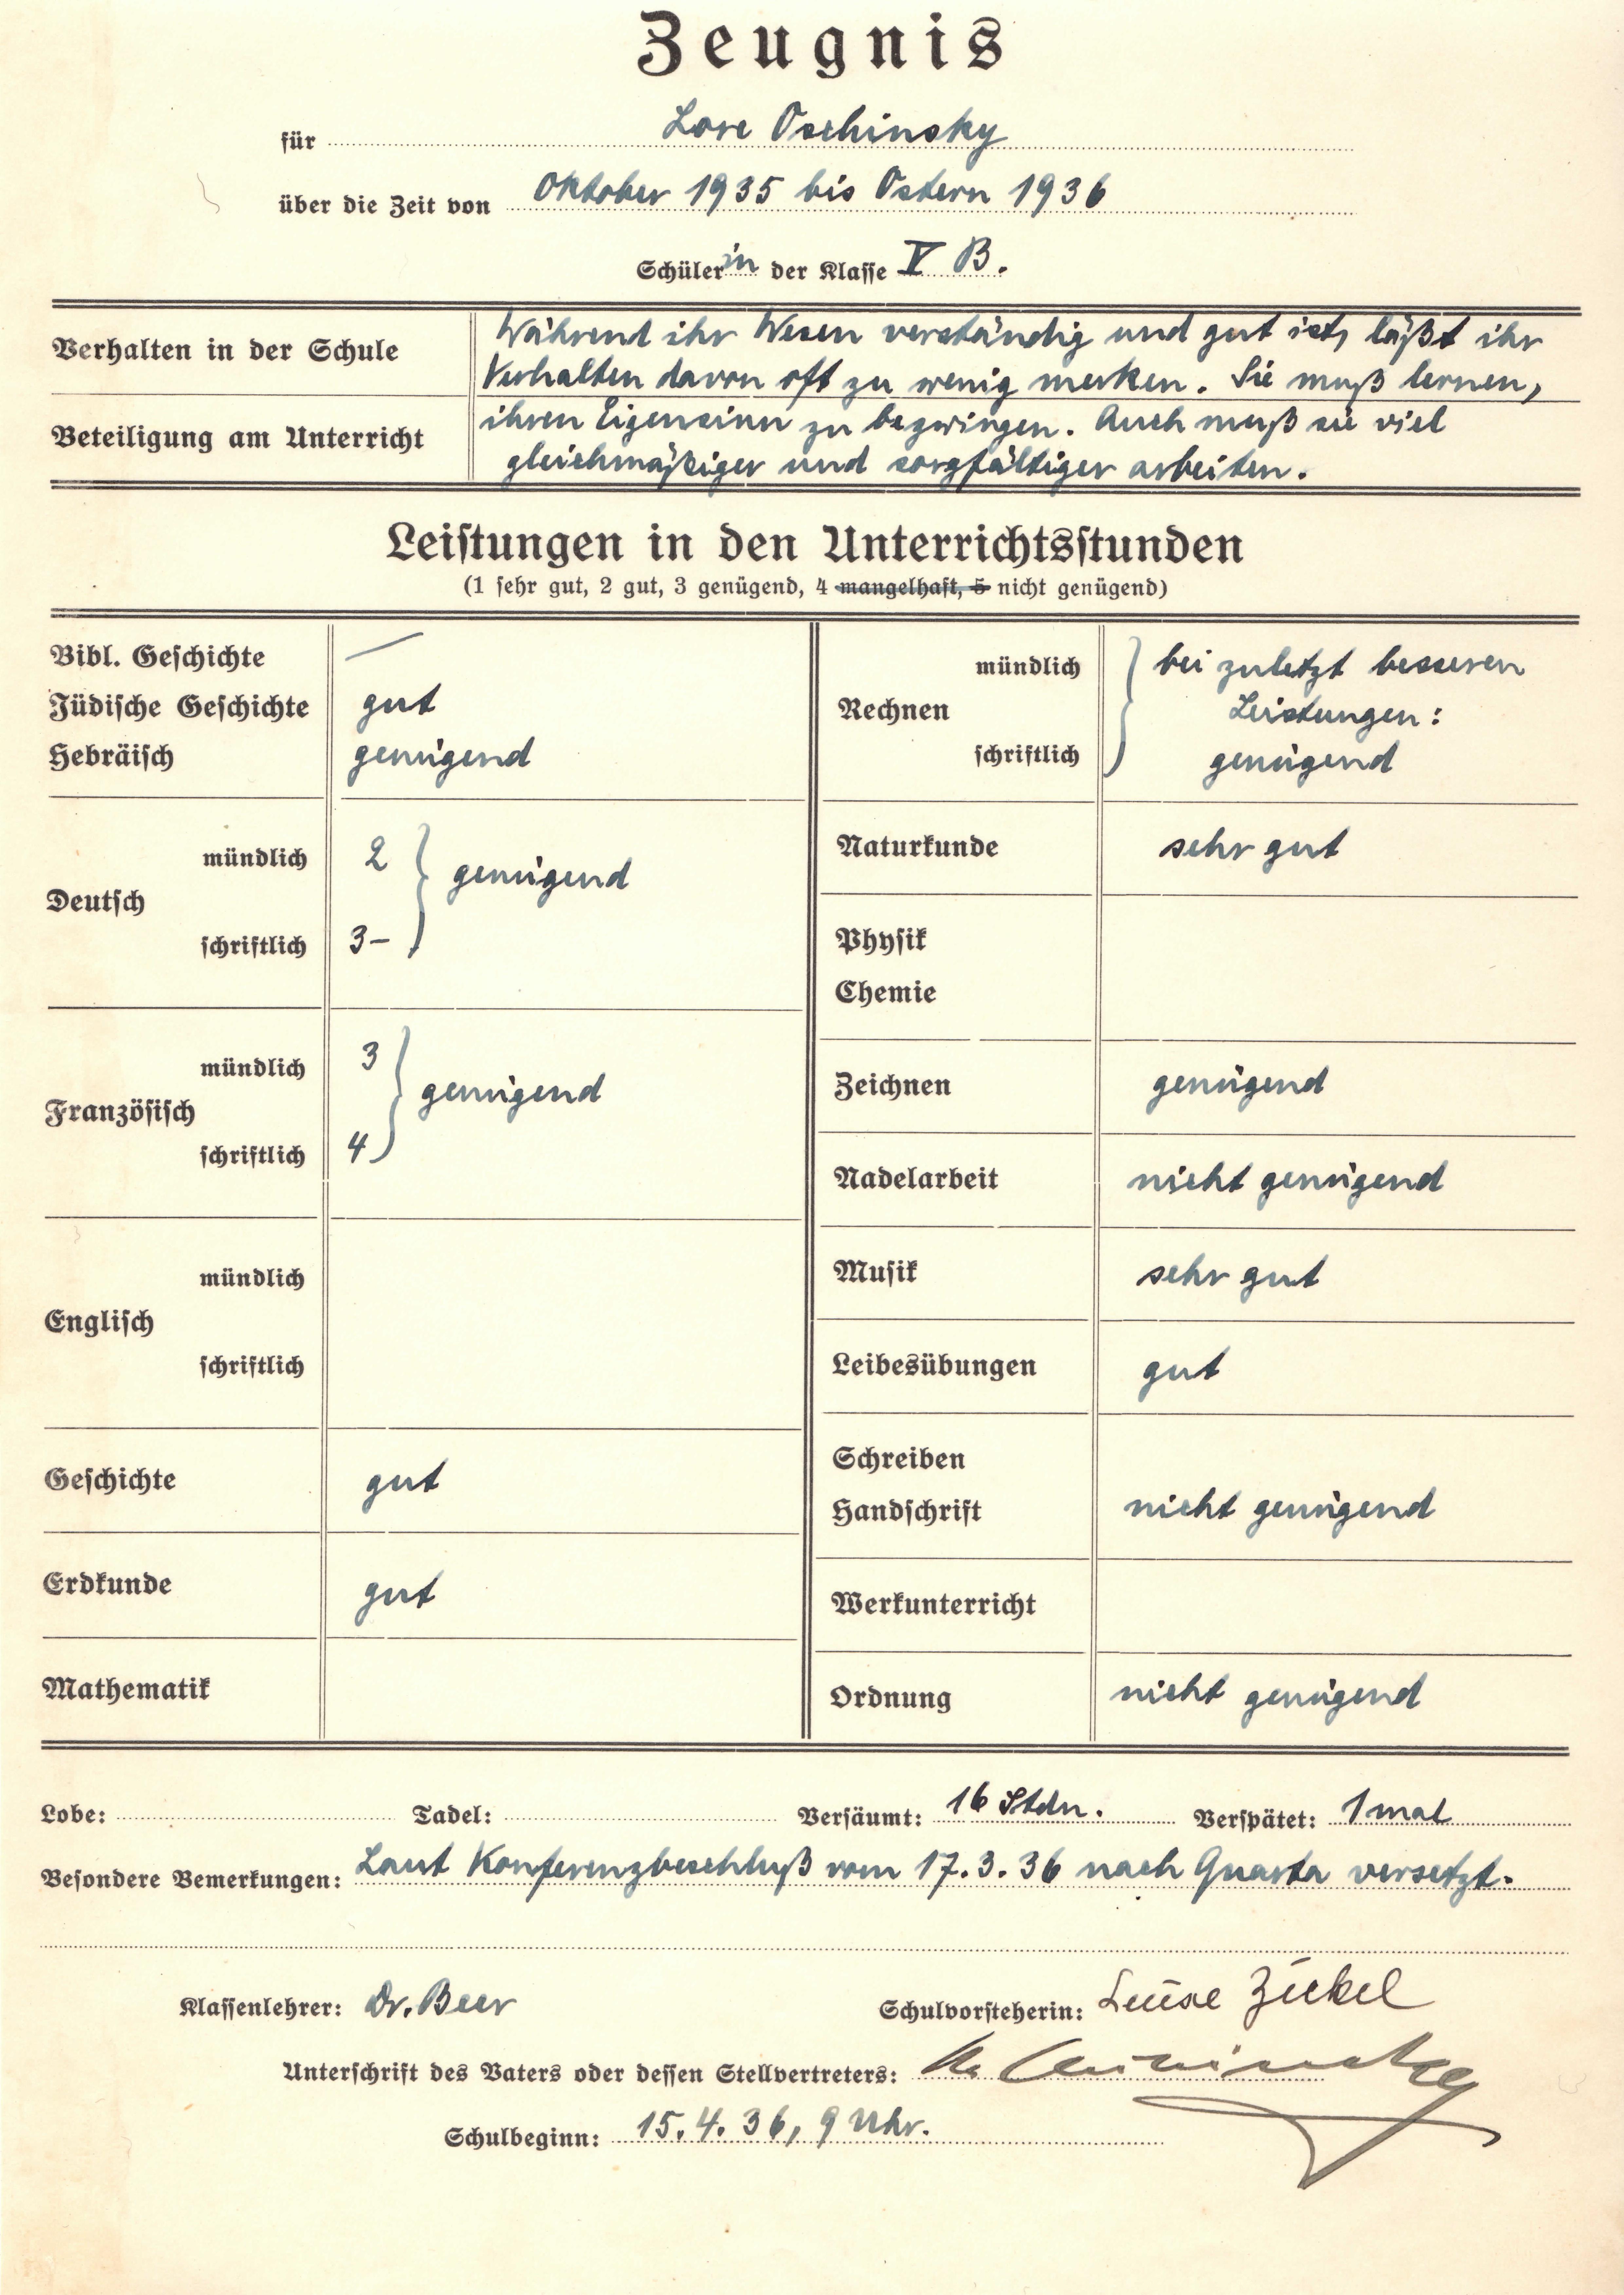 Zeugnis
für Lore Oschinsky
über die Zeit von Oktober 1935 bis Ostern 1936
Schülerin der Klasse V B.
Verhalten in der Schule
Beteiligung am Unterricht
Während ihr Wesen verständig und gut ist, läßt ihr
Verhalten davon oft zu wenig merken. Sie muß lernen,
ihren Eigensinn zu bezwingen. Auch muß sie viel
gleichmäßiger und sorgfältiger arbeiten.
Leistungen in den Unterrichtsstunden
(1 sehr gut, 2 gut, 3 genügend, 4 mangelhaft, 5 nicht genügend)
Bibl. Geschichte —
Jüdische Geschichte gut
Hebräisch genügend
Deutsch
mündlich 2
schriftlich 3-
genügend
Französisch
mündlich 3
schriftlich 4
genügend
Englisch
mündlich
schriftlich
Geschichte gut
Erdkunde gut
Mathematik
Rechnen
mündlich
schriftlich
bei zuletzt besseren
Leistungen:
genügend
Naturkunde sehr gut
Physik
Chemie
Zeichnen genügend
Nadelarbeit nicht genügend
Musik sehr gut
Leibesübungen gut
Schreiben
Handschrift nicht genügend
Werkunterricht
Ordnung nicht genügend
Lobe: Tadel: Versäumt: 16 Stdn. Verspätet: 1 mal
Besondere Bemerkungen: Laut Konferenzbeschluß vom 17.3.36 nach Quarta versetzt.
Klassenlehrer: Dr. Beer Schulvorsteherin: Luise Zickel
Unterschrift des Vaters oder dessen Stellvertreters:
Schulbeginn: 15.4.36, 9 Uhr.